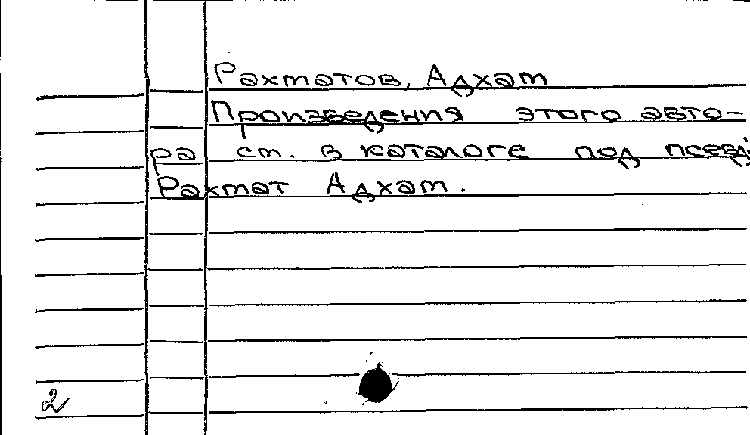 Рахматов, Адхам
Произведения этого авто-
ра см. в каталоге под псевд.
Рахмат Адхам.
2